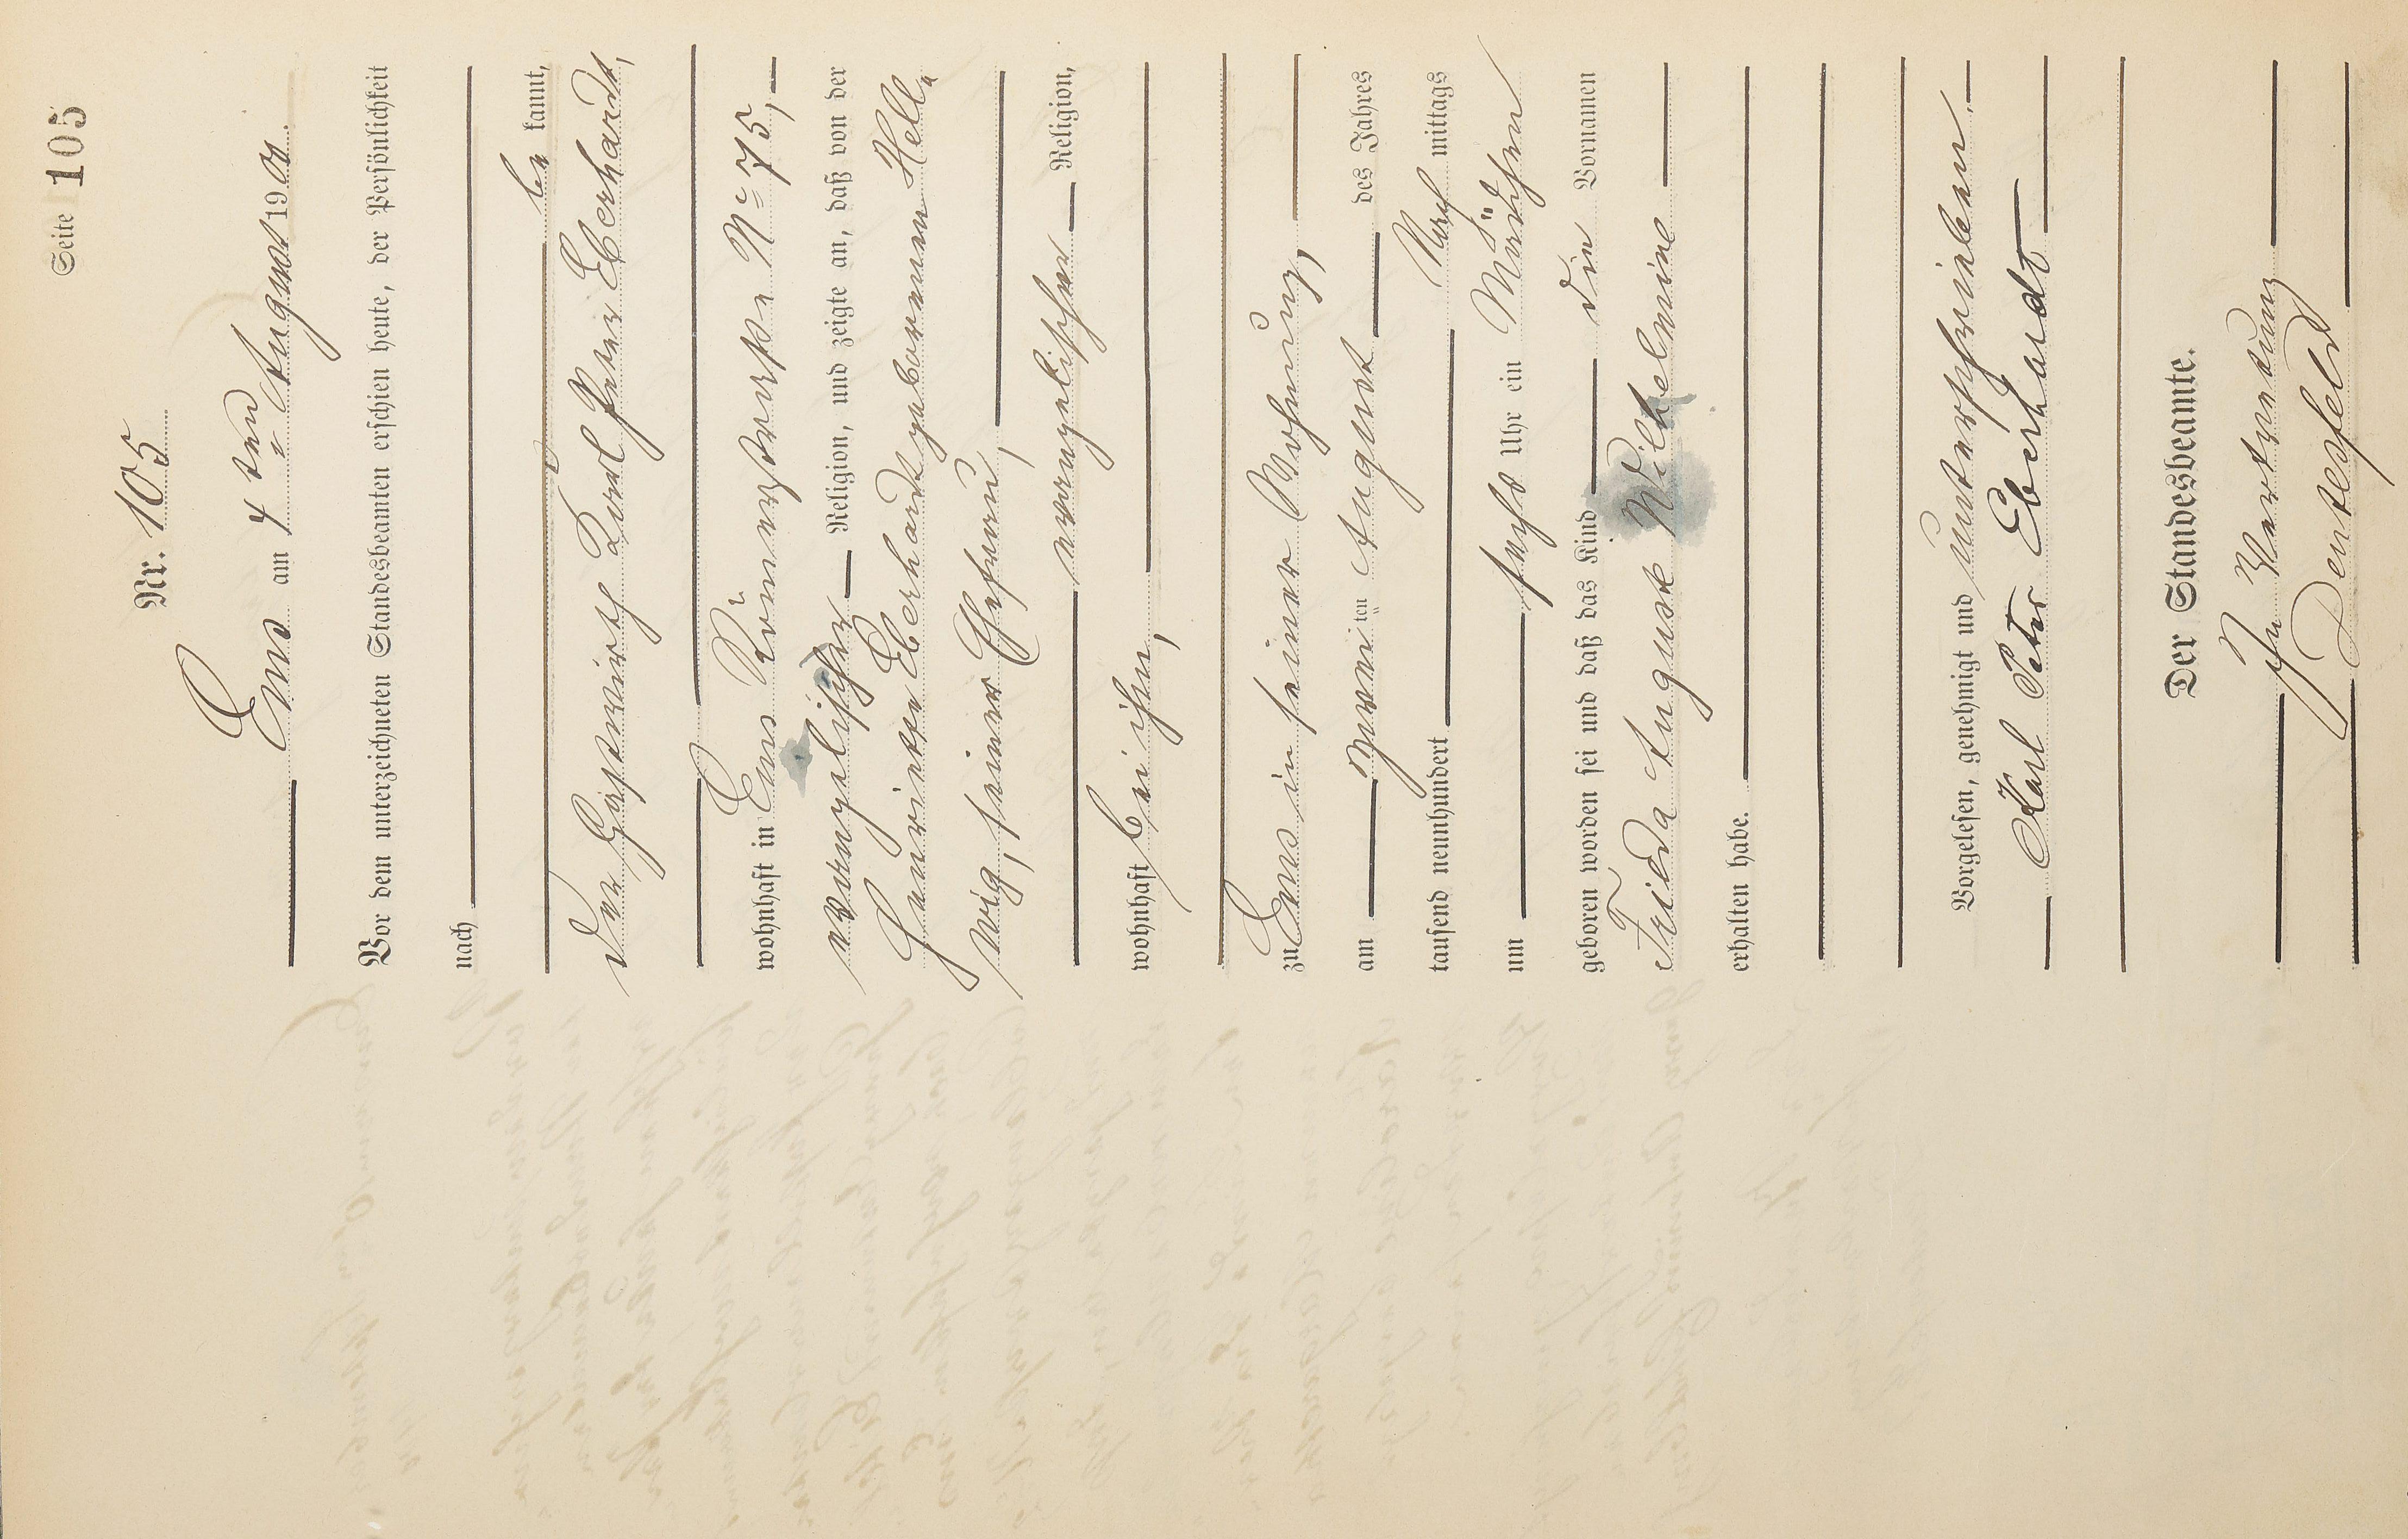 Seite 105
Nr. 105
Ems am 4ten August 190
Vor dem unterzeichneten Standesbeamten erschien heute, der Persönlichkeit
nach
bekannt,
der Gastwirth Karl Peter Eberhardt,
wohnhaft in Ems Römerstraße No 75,
evangelischer Religion, und zeigte an, daß von der
Henriette Eberhardt geborenen Hell-
wig, seiner Ehefrau,
evangelischer Religion,
wohnhaft bei ihm,
zu Ems in seiner Wohnung,
am zweiten August des Jahres
tausend neunhundert Nach mittags
um sechs Uhr ein Mädchen
geboren worden sei und daß das Kind die Vornamen
Frieda Auguste Wilhelmine
erhalten habe.
Vorgelesen, genehmigt und unterschrieben.
Karl Peter Eberhardt
Der Standesbeamte.
In Vertretung